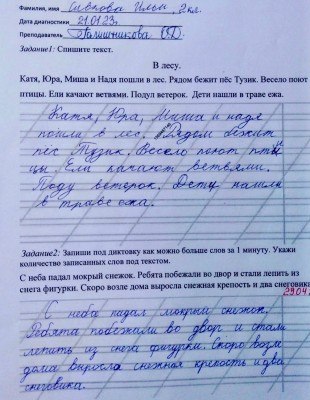 Фамилия, имя Сивкова Илья, 2кл.
Дата диагностики 21.01.23г.
Преподаватель Галишникова
Задание1: Спишите текст.
В лесу.
Катя, Юра, Миша и Надя пошли в лес. Рядом бежит пёс Тузик. Весело поют
птицы. Ели качают ветвями. Подул ветерок. Дети нашли в траве ежа.
Катя, Юра, Миша и надя
пошли в лес. Рядом бежит
пёс Тузик. Весело поют пти
цы. Ели качают ветвями.
Поду ветерок. Дети нашли
в траве ежа.
Задание2: Запиши под диктовку как можно больше слов за 1 минуту. Укажи
количество записанных слов под текстом.
С неба падал мокрый снежок. Ребята побежали во двор и стали лепить из
снега фигурки. Скоро возле дома выросла снежная крепость и два снеговика.
29.04
С неба падал мокрый снежок.
Ребята побежали во двор и стали
лепить из снега фигурки. Скоро возле
дома выросла снежная крепость и два
снеговика.